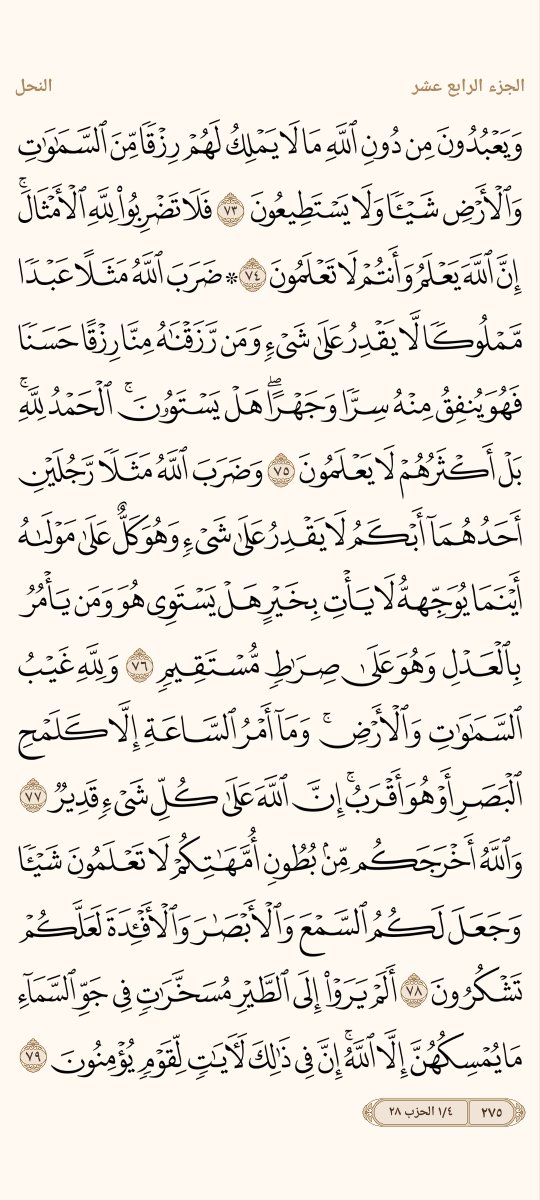 الجزء الرابع عشر
النحل
وَيَعْبُدُونَ مِن دُونِ ٱللَّهِ مَا لَا يَمْلِكُ لَهُمْ رِزْقًا مِّنَ ٱلسَّمَـٰوَٰتِ
وَٱلْأَرْضِ شَيْـًٔا وَلَا يَسْتَطِيعُونَ ٧٣ فَلَا تَضْرِبُوا۟ لِلَّهِ ٱلْأَمْثَالَ ۚ
إِنَّ ٱللَّهَ يَعْلَمُ وَأَنتُمْ لَا تَعْلَمُونَ ٧٤ * ضَرَبَ ٱللَّهُ مَثَلًا عَبْدًا
مَّمْلُوكًا لَّا يَقْدِرُ عَلَىٰ شَىْءٍ وَمَن رَّزَقْنَـٰهُ مِنَّا رِزْقًا حَسَنًا
فَهُوَ يُنفِقُ مِنْهُ سِرًّا وَجَهْرًا ۖ هَلْ يَسْتَوُۥنَ ۚ ٱلْحَمْدُ لِلَّهِ ۚ
بَلْ أَكْثَرُهُمْ لَا يَعْلَمُونَ ٧٥ وَضَرَبَ ٱللَّهُ مَثَلًا رَّجُلَيْنِ
أَحَدُهُمَآ أَبْكَمُ لَا يَقْدِرُ عَلَىٰ شَىْءٍ وَهُوَ كَلٌّ عَلَىٰ مَوْلَىٰهُ
أَيْنَمَا يُوَجِّههُّ لَا يَأْتِ بِخَيْرٍ هَلْ يَسْتَوِى هُوَ وَمَن يَأْمُرُ
بِٱلْعَدْلِ وَهُوَ عَلَىٰ صِرَٰطٍ مُّسْتَقِيمٍ ٧٦ وَلِلَّهِ غَيْبُ
ٱلسَّمَـٰوَٰتِ وَٱلْأَرْضِ ۚ وَمَآ أَمْرُ ٱلسَّاعَةِ إِلَّا كَلَمْحِ
ٱلْبَصَرِ أَوْ هُوَ أَقْرَبُ ۚ إِنَّ ٱللَّهَ عَلَىٰ كُلِّ شَىْءٍ قَدِيرٌ ٧٧
وَٱللَّهُ أَخْرَجَكُم مِّنۢ بُطُونِ أُمَّهَـٰتِكُمْ لَا تَعْلَمُونَ شَيْـًٔا
وَجَعَلَ لَكُمُ ٱلسَّمْعَ وَٱلْأَبْصَـٰرَ وَٱلْأَفْـِٔدَةَ لَعَلَّكُمْ
تَشْكُرُونَ ٧٨ أَلَمْ يَرَوْا۟ إِلَى ٱلطَّيْرِ مُسَخَّرَٰتٍ فِى جَوِّ ٱلسَّمَآءِ
مَا يُمْسِكُهُنَّ إِلَّا ٱللَّهُ ۚ إِنَّ فِى ذَٰلِكَ لَـَٔايَـٰتٍ لِّقَوْمٍ يُؤْمِنُونَ ٧٩
٢٧٥
١/٤ الحزب ٢٨